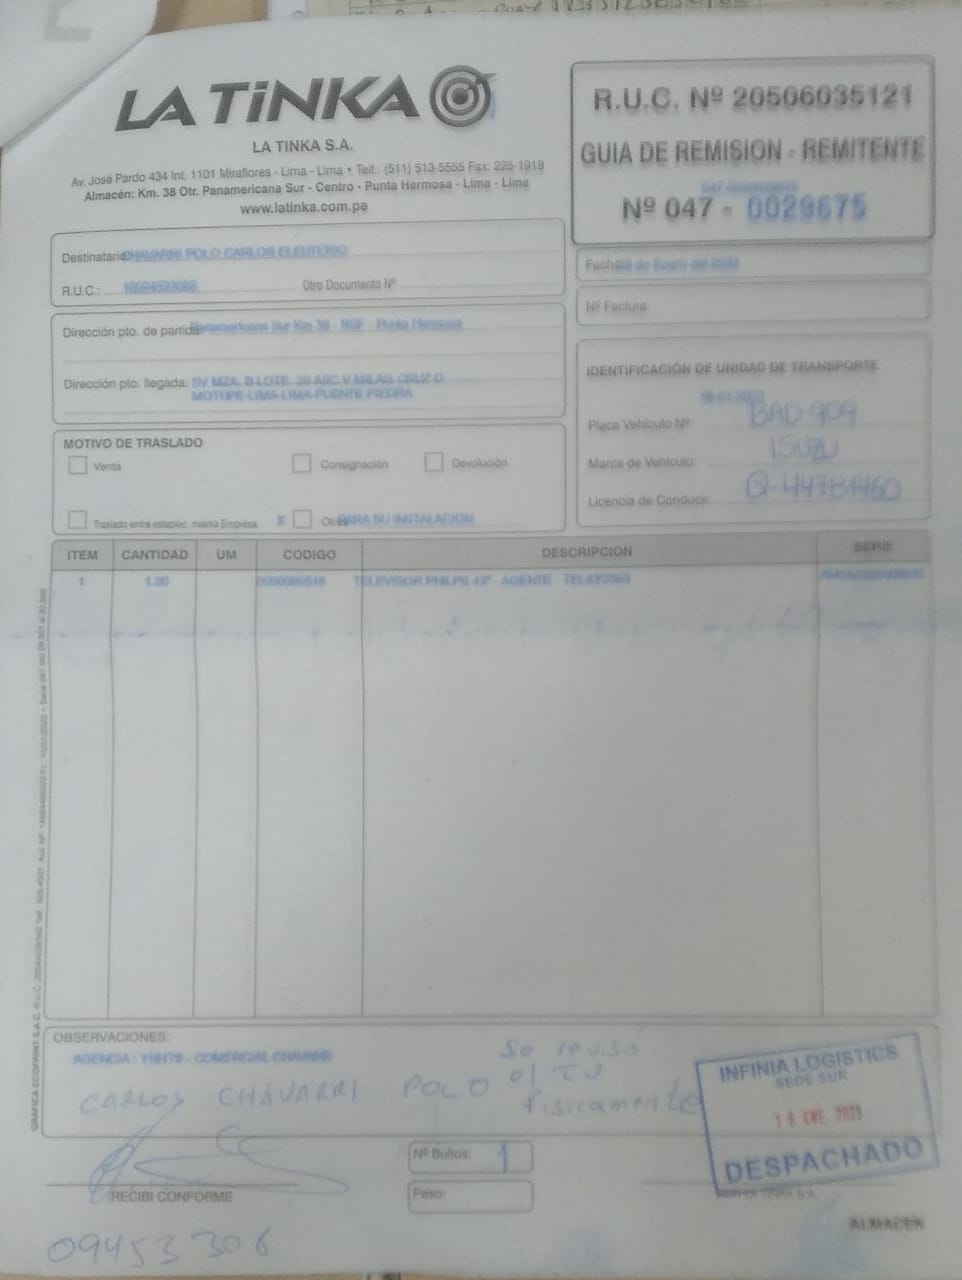 LA TiNKA
LA TINKA S.A.
Av. José Pardo 434 Int. 1101 Miraflores - Lima - Lima • Telf.: (511) 513-5555 Fax: 225-1919
Almacén: Km. 38 Otr. Panamericana Sur - Centro - Punta Hermosa - Lima - Lima
www.latinka.com.pe
R.U.C. Nº 20506035121
GUIA DE REMISION - REMITENTE
Nº 047 - 0029675
Destinatario: CHAVARRI POLO CARLOS ELEUTERIO
R.U.C.:
Otro Documento Nº
Fecha: de Enero del
Nº Factura:
Dirección pto. de partida: Panamericana Sur Km 38 - - Punta Hermosa
Dirección pto. llegada: AV MZA. B LOTE. 20 ASC.V.MILAG.CRUZ D
MOTUPE-LIMA-LIMA-PUENTE PIEDRA
IDENTIFICACIÓN DE UNIDAD DE TRANSPORTE
Placa Vehículo Nº: BAD-909
Marca de Vehículo: ISUZU
Licencia de Conducir: Q-44781460
MOTIVO DE TRASLADO
Venta
Consignación
Devolución
Traslado entre establec. misma Empresa
X
Otros PARA SU INSTALACION
ITEM CANTIDAD UM CODIGO DESCRIPCION SERIE
1 1.00 TELEVISOR PHILPS 43" - AGENTE -
OBSERVACIONES:
AGENCIA : - COMERCIAL CHAVARR
Se reviso
el TV
fisicamente
CARLOS CHÁVARRI POLO
INFINIA LOGISTICS
SEDE SUR
1 8 ENE. 2023
DESPACHADO
Nº Bultos: 1
Peso:
RECIBI CONFORME
ALMACEN
09453306